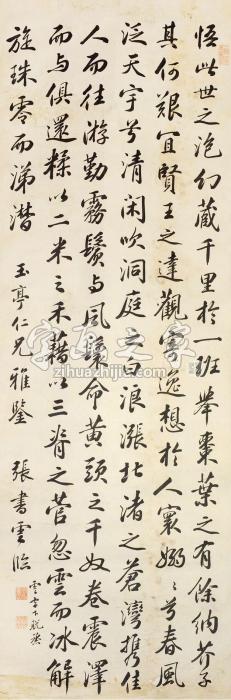 悟此世之泡幻藏千里於一班舉棗葉之有餘納芥子
其何艱宜賢王之達觀寄逸想於人寰嫋〻兮春風
泛天宇兮清閑吹洞庭之白浪漲北渚之蒼灣攜佳
人而往游勤霧鬢与風鬟命黃頭之千奴卷震澤
而与俱還糅以二米之禾藉以三脊之菅忽雲而冰解
旋珠零而涕潸 玉亭仁兄雅鑒 張書雲臨
雲字下脫蒸
字画之家
zihuazhijia.com